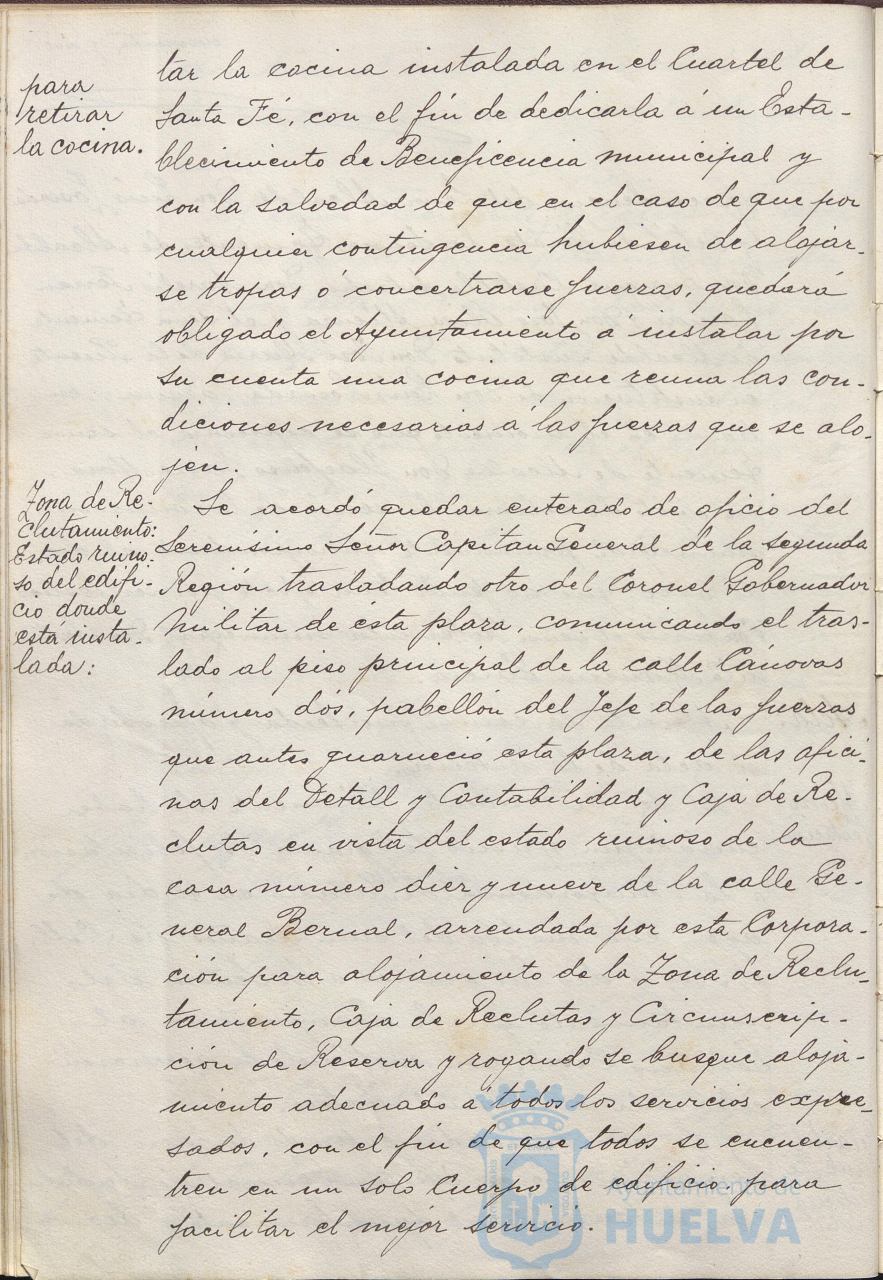 para
retirar
la cocina.
tar la cocina instalada en el Cuartel de
Santa Fé, con el fin de dedicarla á un Esta-
blecimiento de Beneficencia municipal y
con la salvedad de que en el caso de que por
cualquier contingencia hubiesen de alojar-
se tropas ó concertrarse fuerzas, quedará
obligado el Ayuntamiento á instalar por
su cuenta una cocina que reuna las con-
diciones necesarias á las fuerzas que se alo-
jen.
Zona de Re-
clutamiento:
Estado ruino-
so del edifi-
cio donde
está insta-
lada:
Se acordó quedar enterado de oficio del
Serenísimo Señor Capitan General de la segunda
Región trasladando otro del Coronel Gobernador
militar de ésta plaza, comunicando el tras-
lado al piso principal de la calle Cánovas
número dós, pabellón del Jefe de las fuerzas
que antes guarneció esta plaza, de las ofici-
nas del Detall y Contabilidad y Caja de Re-
clutas en vista del estado ruinoso de la
casa número diez y nueve de la calle Ge-
neral Bernal, arrendada por esta Corpora-
ción para alojamiento de la Zona de Reclu-
tamiento, Caja de Reclutas y Circunscrip-
ción de Reserva y rogando se busque aloja-
miento adecuado á todos los servicios expre-
sados, con el fin de que todos se encuen-
tren en un solo Cuerpo de edificio para
facilitar el mejor servicio.
Ayuntamiento de
HUELVA